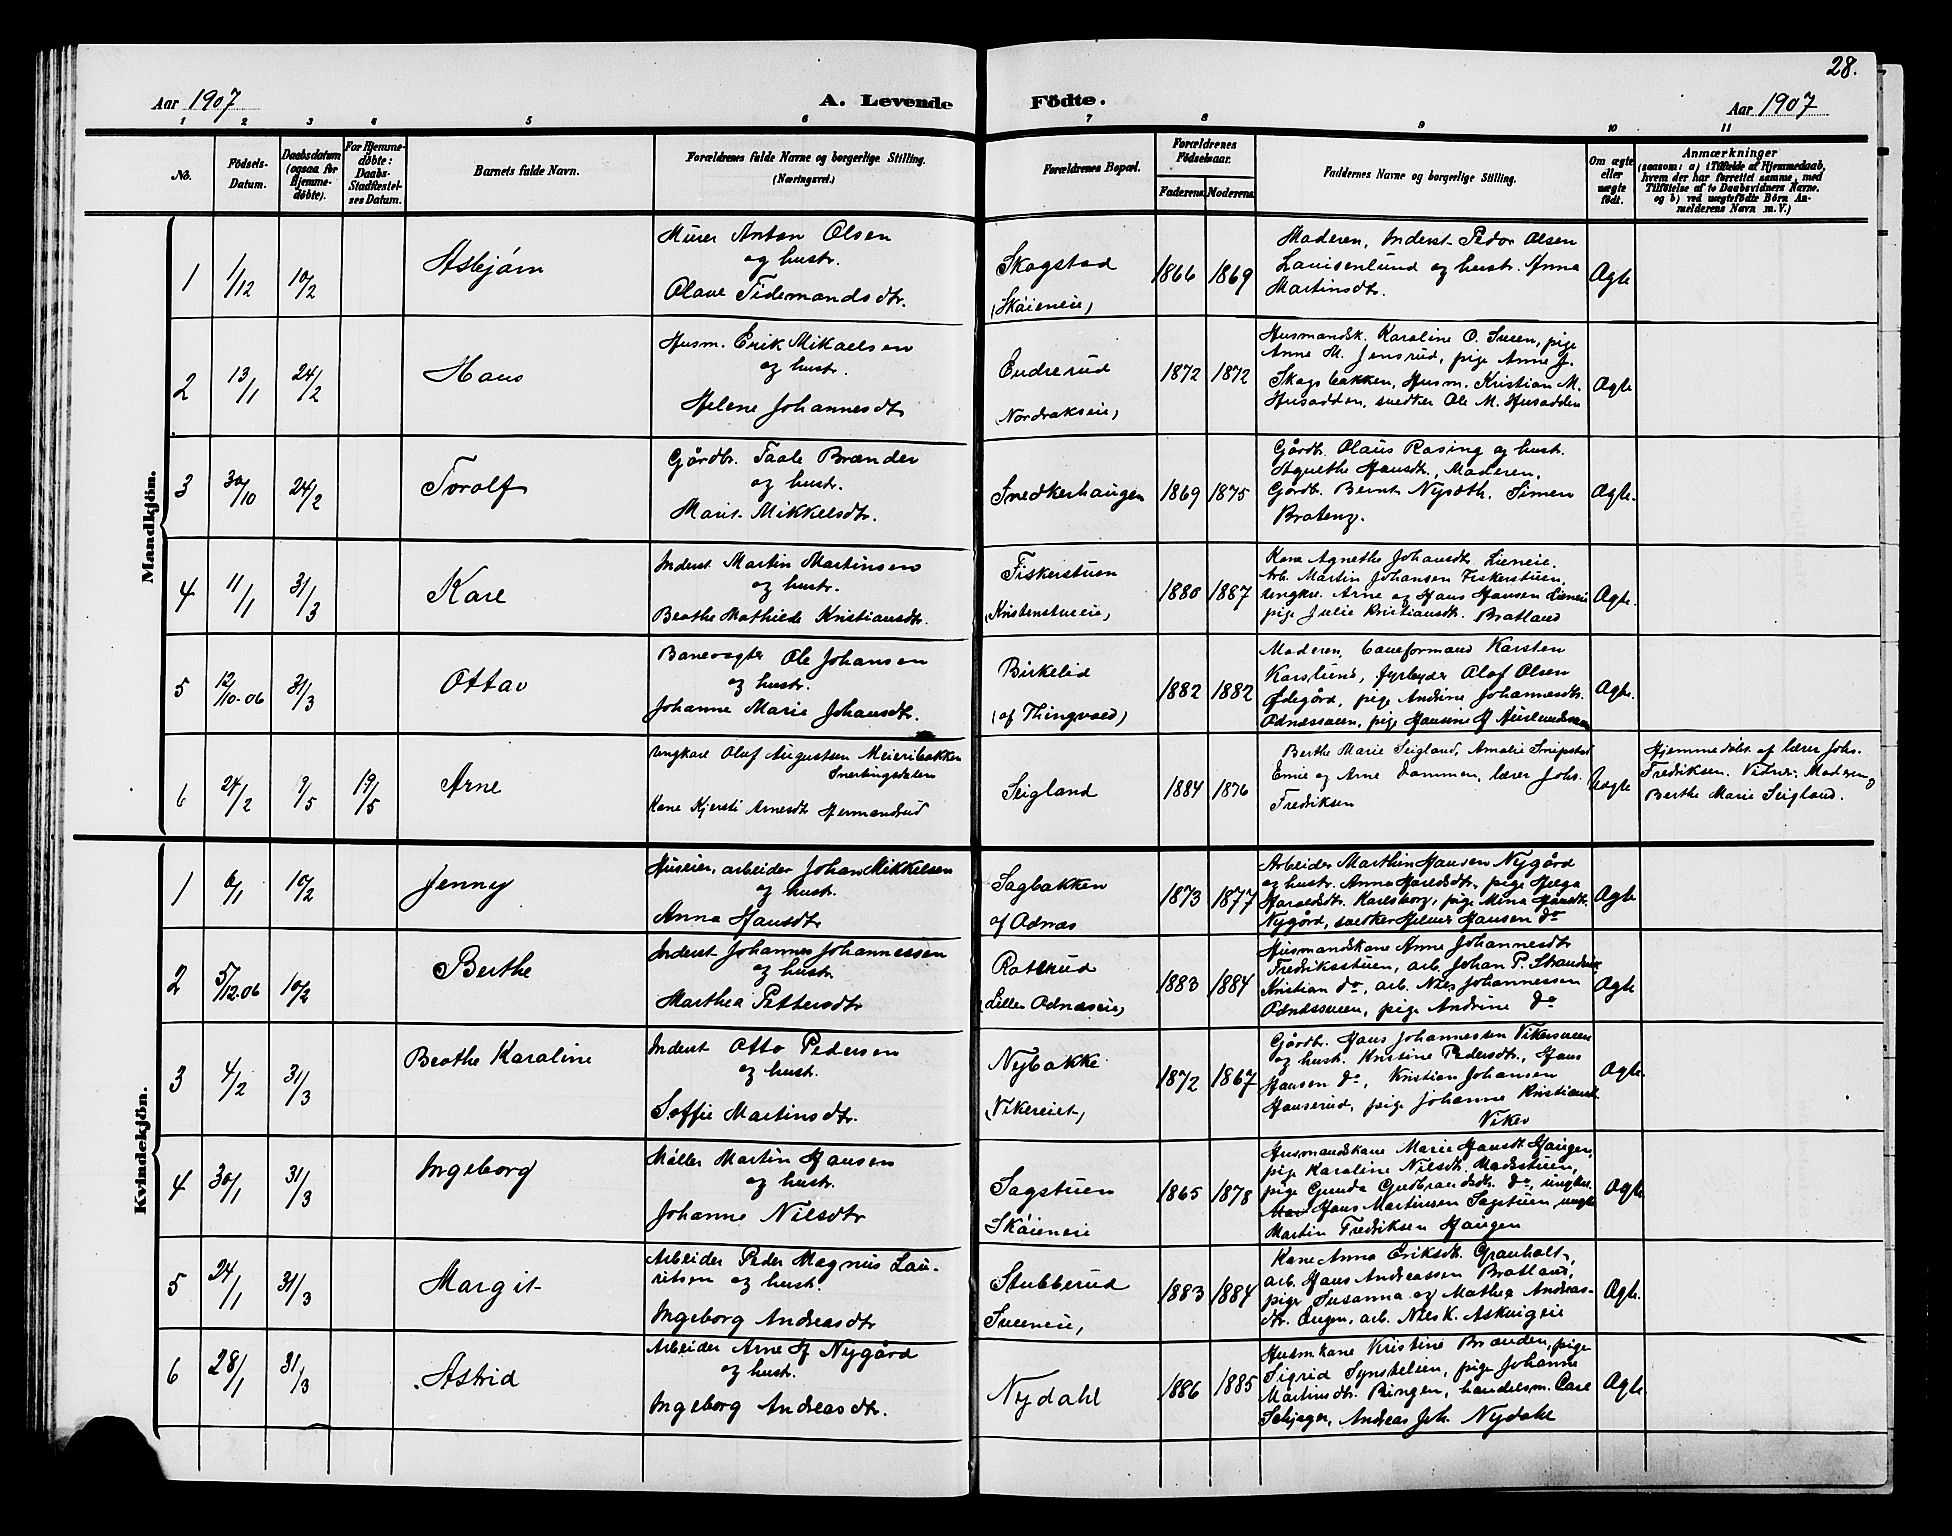 28.
Aar 1907
A. Levende
Födte.
Aar 1907
1 2 3 4 5 6 7 8 9 10 11
No.
Födsels-
Datum.
Daabsdatum
(ogsaa for
Hjemme-
døbte).
For Hjemme-
døbte:
Daabs-
Stadfæstel-
ses Datum.
Barnets fulde Navn.
Forældrenes fulde Navne og borgerlige Stilling.
(Næringsvei.)
Forældrenes Bopæl.
Forældrenes
Födselsaar.
Faderens.
Moderens.
Faddernes Navne og borgerlige Stilling.
Om ægte
eller
uægte
födt.
Anmærkninger
(saasom: a) i Tilfælde af Hjemmedaab,
hvem der har forrettet samme, med
Tilföielse af to Daabsvidners Navne.
og b) ved uægtefödte Børn An-
melderens Navn m. V.)
Mandkjön.
1 1/12 10/2
Asbjørn
Murer Anton Olsen
og hustr.
Olave Tidemandsdtr.
Skogstad
(Skøieneie)
1866 1869
Moderen, Inderst Peder Olsen
Louisenlund og hustr. Anna
Martinsdtr.
Ægte
2 13/1 24/2
Hans
Husm. Erik Mikaelsen
og hustr.
Helene Johannesdtr
Endrerud
Nordrakseie)
1872 1872
Husmandsk. Karoline O. Sveen, pige
Anne M. Jensrud, pige Anne J.
Skogsbakken, Husm. Kristian M.
Husodden, snedker Ole M. Husodden
Ægte
3 30/10 24/2
Torolf
Gårdbr. Taale Brænden
og hustr.
Marit Mikkelsdtr.
Snedkerhaugen
1869 1875
Gårdb. Olaus Rosing og hustr.
Agnethe Hansdtr., Moderen,
Gårdb. Bernt Nysæth. Simen
Brateng.
Ægte.
4 11/1 31/3
Kare
Inderst Martin Martinsen
og hustr.
Beathe Mathilde Kristiansdtr.
Fiskerstuen
(Kristenstueeie)
1880 1887
Kone Agnethe Johansdtr. Lieneie.
Arb. Martin Johansen Fiskerstuen,
ungkr. Arne og Hans Hansen Lieneie
pige Julie Kristiansdtr. Bratland
Ægte.
5 12/10-06 31/3
Ottar
Banevogter Ole Johansen
og hustr.
Johanne Marie Johansdtr.
Birkelid
(af Thingvold)
1882 1882
Moderen, baneformand Karsten
Karslund, fyrbøder Olaf Olsen
Ødegård, pige Andrine Johannesdtr.
Odnæssveen, pige Hansine H.
Ægte.
6 24/2 9/5 19/5
Arne
Ungkarl Oluf Augustsen Meieribakken
Snertingdalen
Kone Kjersti Arnesdtr Hermandrud
Seigland
1884 1876
Berthe Marie Seigland, Amalie Snipstad
Emie og Arne Dammen, lærer Johs.
Fredriksen
Uægte
Hjemmedøbt af lærer Johs.
Fredriksen. Vidner: Moderen og
Berthe Marie Seigland.
Kvindekjön.
1 6/1 10/2
Jenny
Huseier, arbeider Johan Mikkelsen
og hustr
Anna Hansdtr
Sagbakken
af Odnæs
1873 1877
Arbeider Marthin Hansen Nygård
og hustr. Anna Haraldsdtr, pige Helga
Haraldsdtr. Karlsborg, pige Mina Hansdtr.
Nygård, snedker Helmer Hansen do
Ægte
2 5/12.06 10/2
Berthe
Inderst Johannes Johannessen
og hustr
Marthea Pettersdtr
Rotterud
(Lille Odnæseie)
1883 1884
Husmandskone Anne Johannesdtr
Fredriksstuen, arb. Johan P.
Kristian do, arb. Nils Johannessen
Odnæssveen, pige Andrine do
Ægte
3 4/2 31/3
Beathe Karoline
Inderst Otto Pedersen
og hustr.
Soffie Martinsdtr.
Nybakke
(Vikereiet)
1872 1867
Gårdbr. Hans Johannesen Vikersveen
og hustr. Kristine Pedersdtr., Hans
Hansen do, Kristian Johansen
Hanserud, pige Johanne Kristiansdtr
Viker
Ægte.
4 30/1 31/3
Ingeborg
Møller Martin Hansen
og hustr.
Johanne Nilsdtr
Sagstuen
Skøieneie
1865 1878
Husmandskone Marie Hansdtr Haugen,
pige Karoline Nilsdtr. Madsstuen,
pige Gunda Gudbrandsdtr. do, ungkr.
Hans Martinsen Sagstuen, ungkr
Martin Fredriksen Haugen
Ægte
5 24/1 31/3
Margit
Arbeider Peder Magnus Lau-
ritsen og hustr.
Ingeborg Andreasdtr
Stubberud
Sveeneie,
1883 1884
Kone Anna Eriksdtr. Granholt,
arb. Hans Andreassen Bratland,
pige Susanna og Mathea Andreas-
dtr. Engen, arb. Nils K. Askvigeie
Ægte.
6 28/1 31/3
Astrid
Arbeider Arne H Nygård
og hustr.
Ingeborg Andreasdtr.
Nydahl
1886 1885
Husmkone Kristine Brænden, pige
Sigrid Synstelien, pige Johanne
Martinsdtr. Ringen, handelsm. Carl
Andreas Joh. Nydahl
Ægte